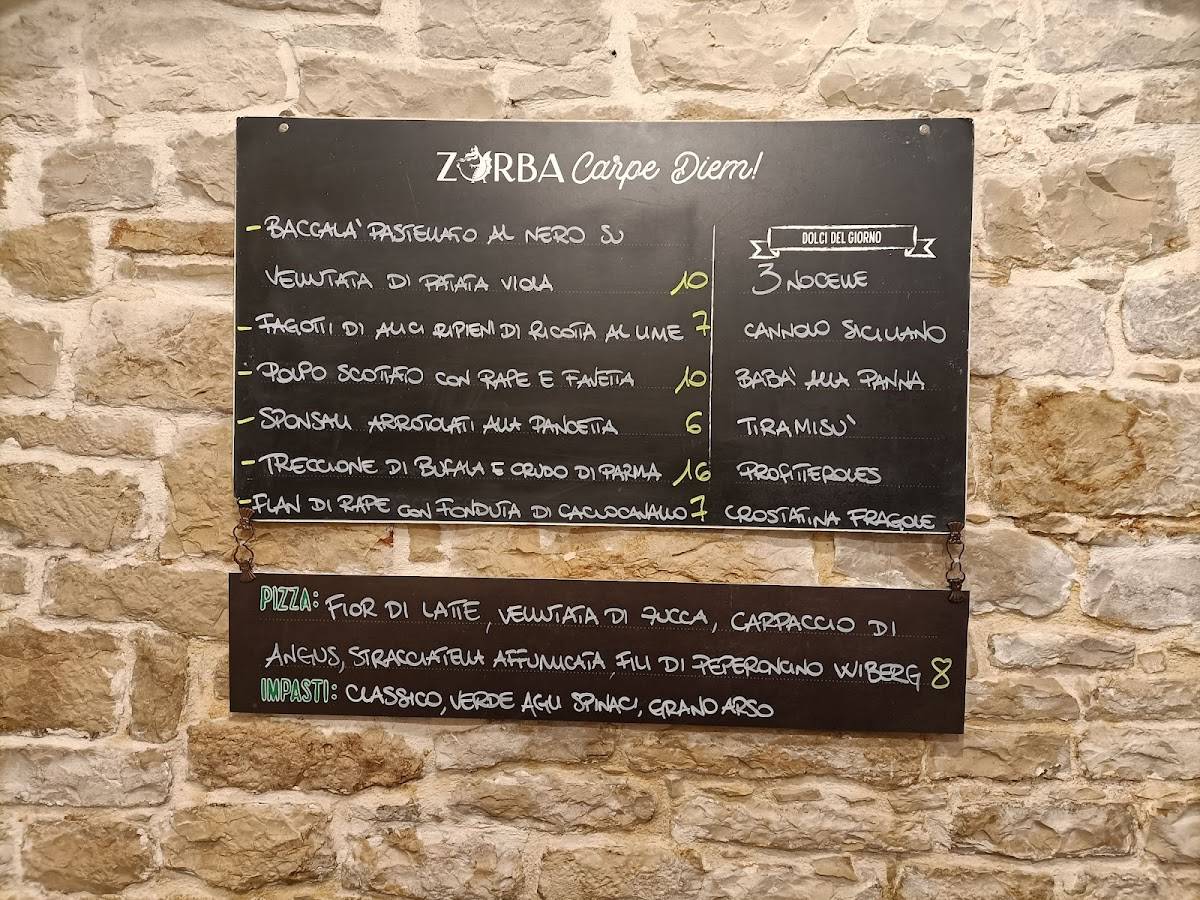 ZORBA Carpe Diem!
- BACCALA' PASTELLATO AL NERO SU
VELLUTATA DI PATATA VIOLA 10
- FAGOTTI DI ALICI RIPIENI DI RICOTTA AL LIME 7
- POLPO SCOTTATO CON RAPE E FAVETTA 10
- SPONSALI ARROTOLATI ALLA PANCETTA 6
- TRECCIONE DI BUFALA E CRUDO DI PARMA 16
- FLAN DI RAPE CON FONDUTA DI CACIOCAVALLO 7
DOLCI DEL GIORNO
3 NOCELLE
CANNOLO SICILIANO
BABA' ALLA PANNA
TIRAMISU'
PROFITEROLES
CROSTATINA FRAGOLE
PIZZA: FIOR DI LATTE, VELLUTATA DI ZUCCA, CARPACCIO DI
ANGUS, STRACCIATELLA AFFUMICATA FILI DI PEPERONCINO WIBERG 8
IMPASTI: CLASSICO, VERDE AGLI SPINACI, GRANO ARSO